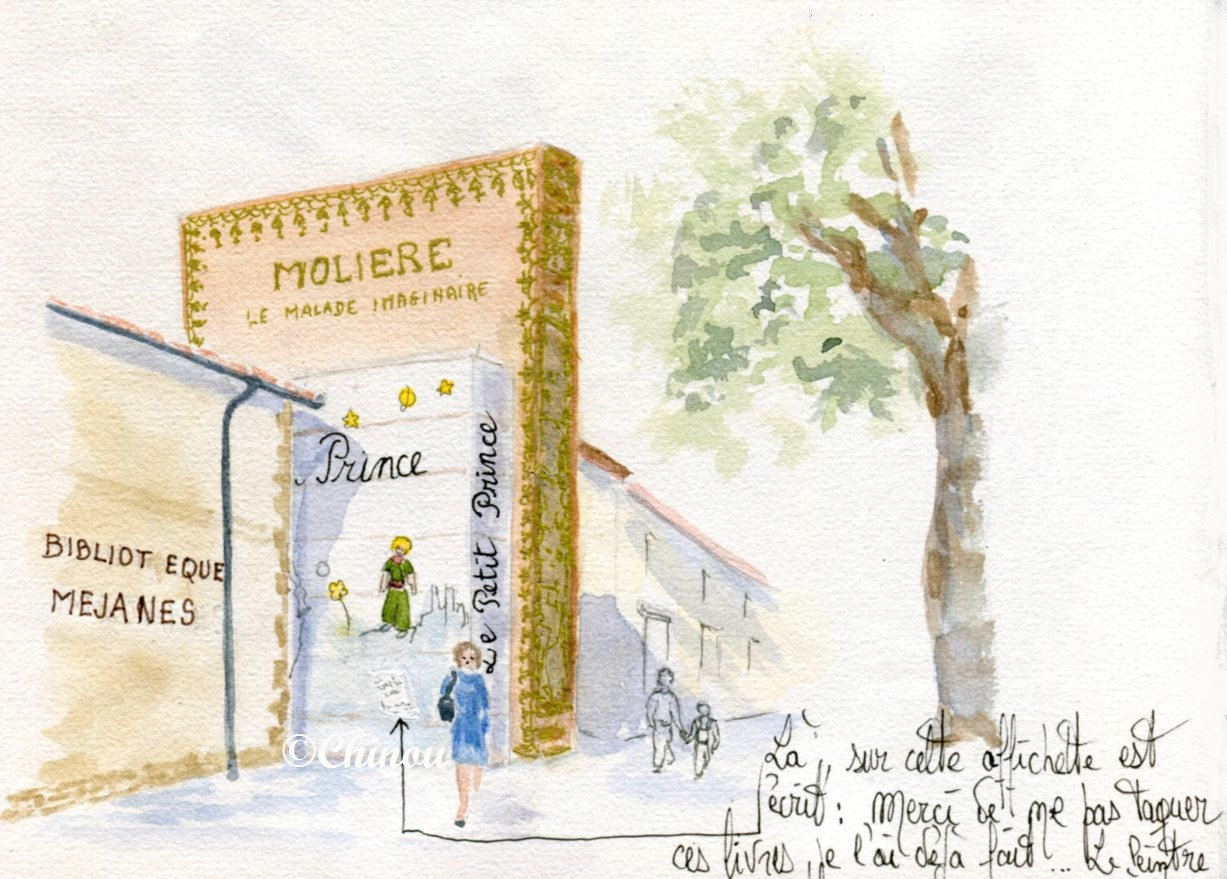 MOLIERE
LE MALADE IMAGINAIRE
Prince
Le Petit Prince
BIBLIOT EQUE
MEJANES
©Chinou
Là, sur cette affichette est
écrit : Merci de ne pas taguer
ces livres, je l'ai déjà fait... Le Peintre